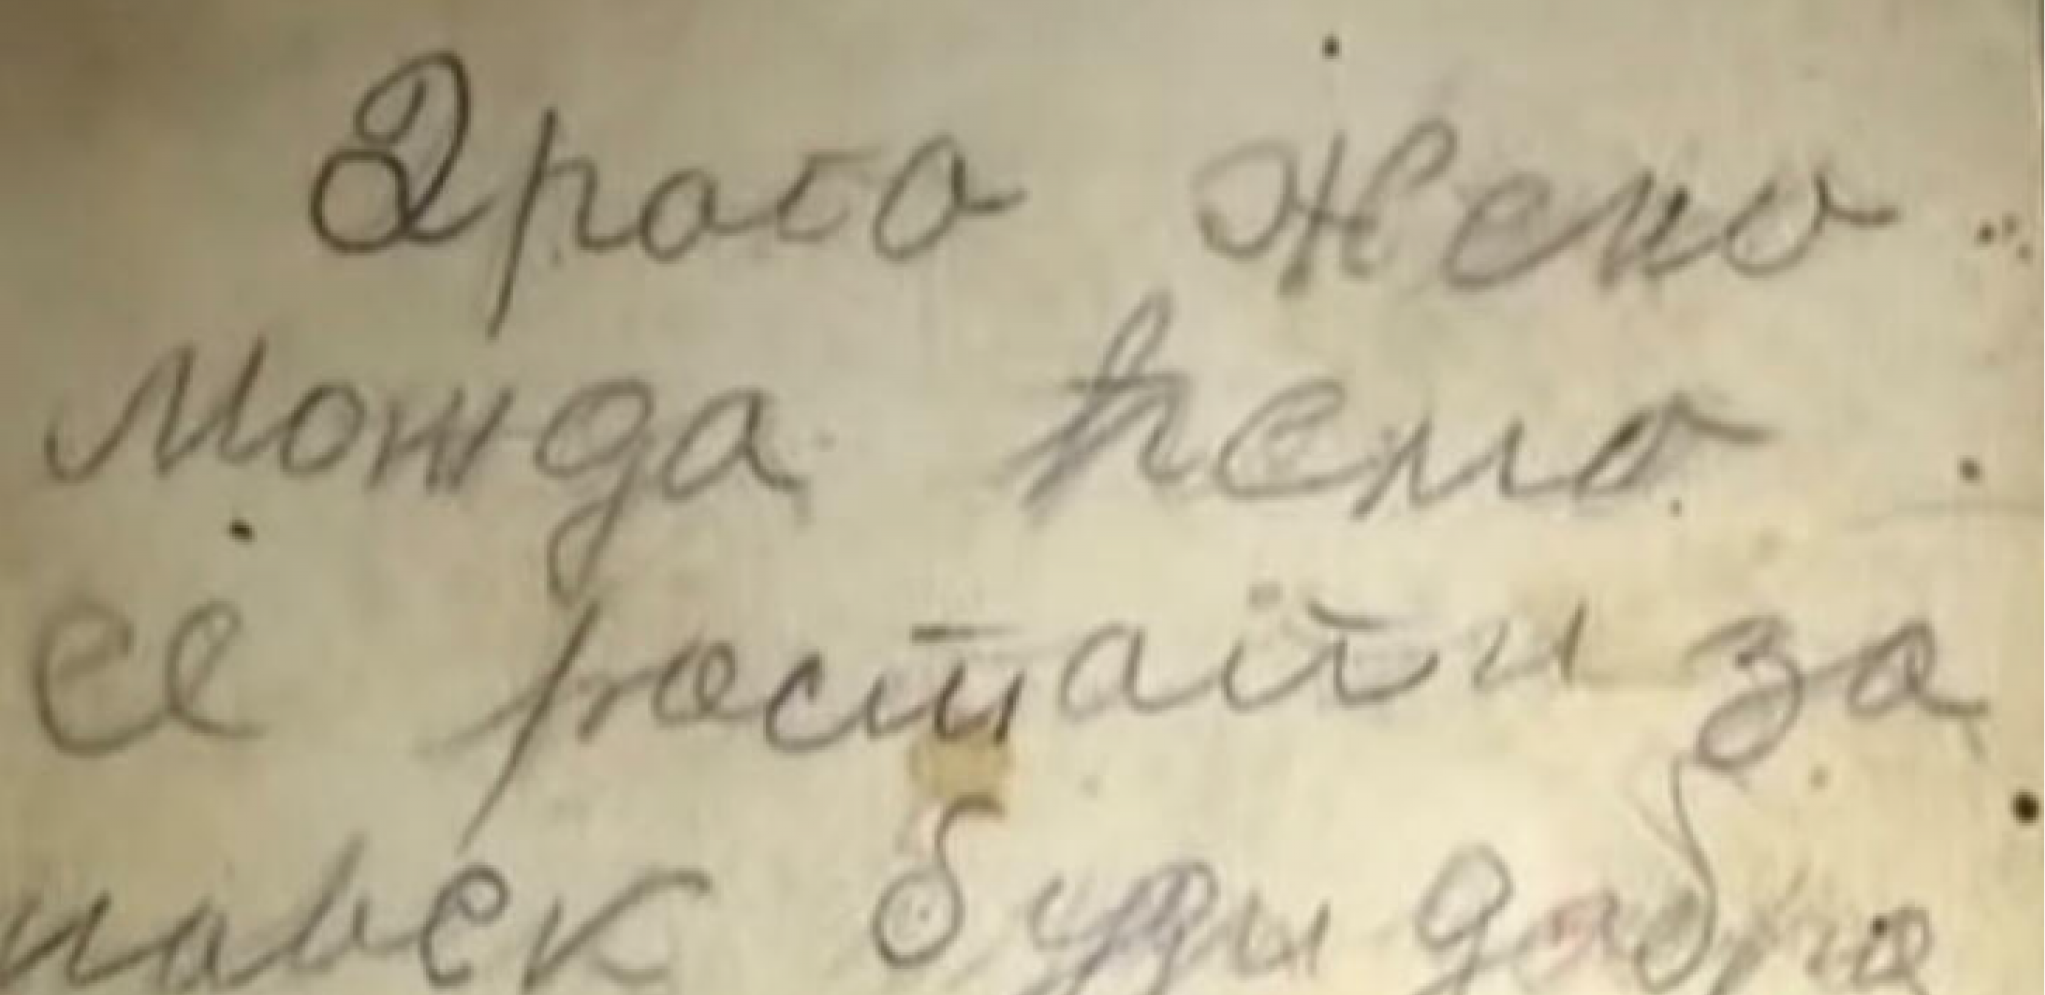 Драга жено
можда ћемо
се растати за
навек буди добра